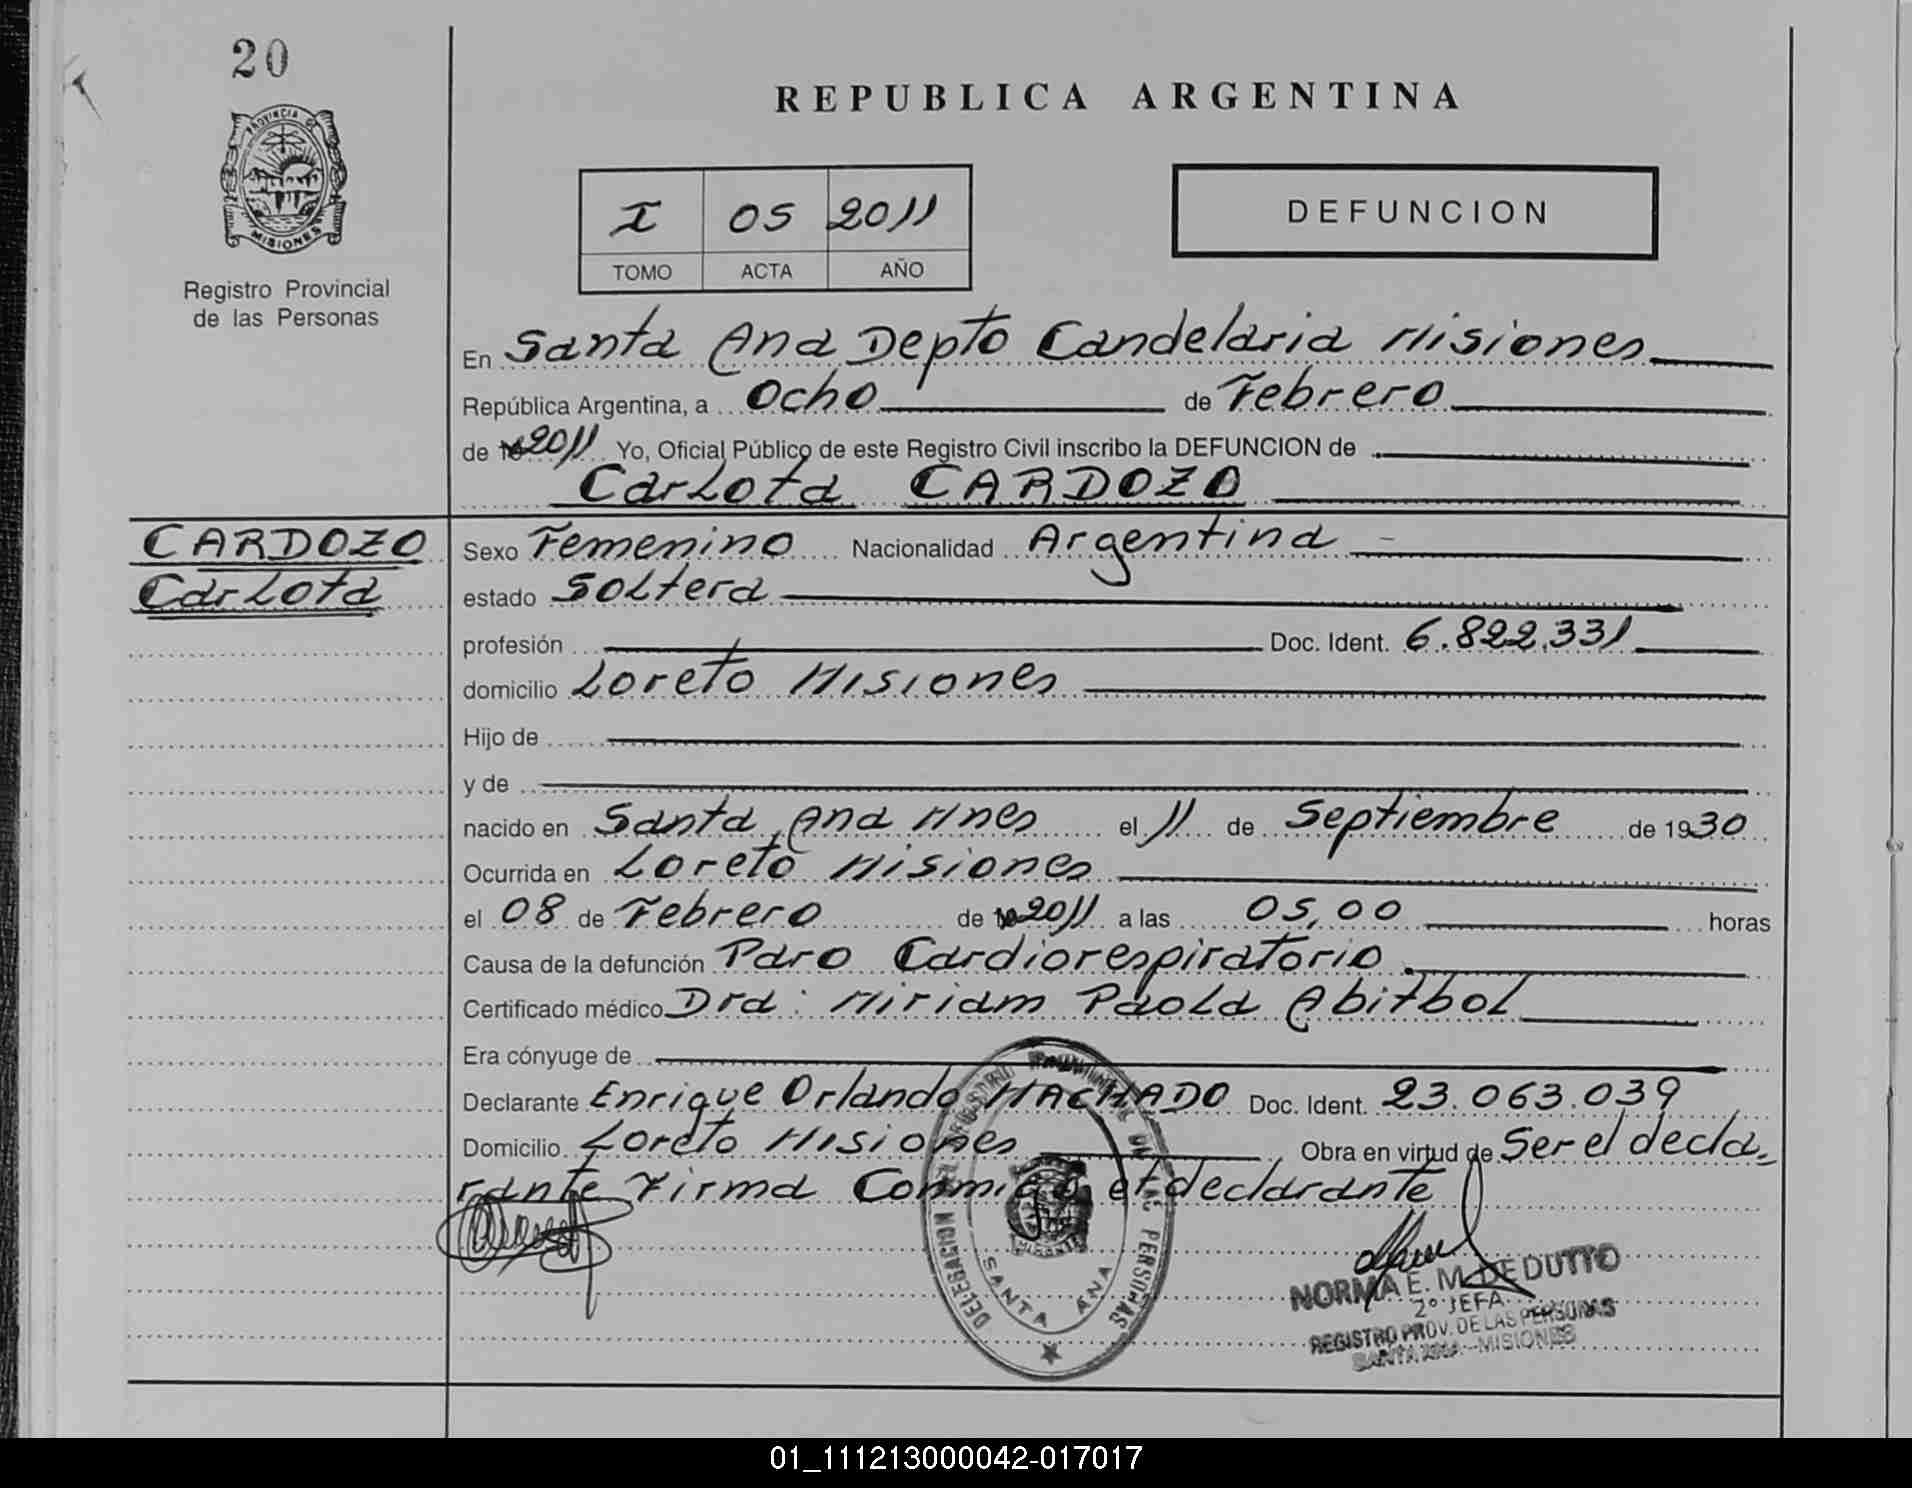 20
REPUBLICA ARGENTINA
PROVINCIA DE
MISIONES
I 05 2011
TOMO ACTA AÑO
DEFUNCION
Registro Provincial
de las Personas
En Santa Ana Depto Candelaria Misiones
República Argentina, a Ocho de Febrero
de 2011 Yo, Oficial Público de este Registro Civil inscribo la DEFUNCION de
Carlota CARDOZO
CARDOZO
Carlota
Sexo Femenino Nacionalidad Argentina
estado Soltera
profesión Doc. Ident. 6.822.331
domicilio Loreto Misiones
Hijo de
y de
nacido en Santa Ana Mnes el 11 de Septiembre de 1930
Ocurrida en Loreto Misiones
el 08 de Febrero de 2011 a las 05,00 horas
Causa de la defunción Paro Cardiorespiratorio
Certificado médico Dra: Miriam Paola Abitbol
Era cónyuge de
Declarante Enrique Orlando MACHADO Doc. Ident. 23.063.039
Domicilio Loreto Misiones Obra en virtud de Ser el decla
rante Firma Conmigo el declarante
DELEGACION DE LAS PERSONAS
SANTA ANA
NORMA E. M. DE DUTTO
2° JEFA
REGISTRO PROV. DE LAS PERSONAS
SANTA ANA - MISIONES
01_111213000042-017017